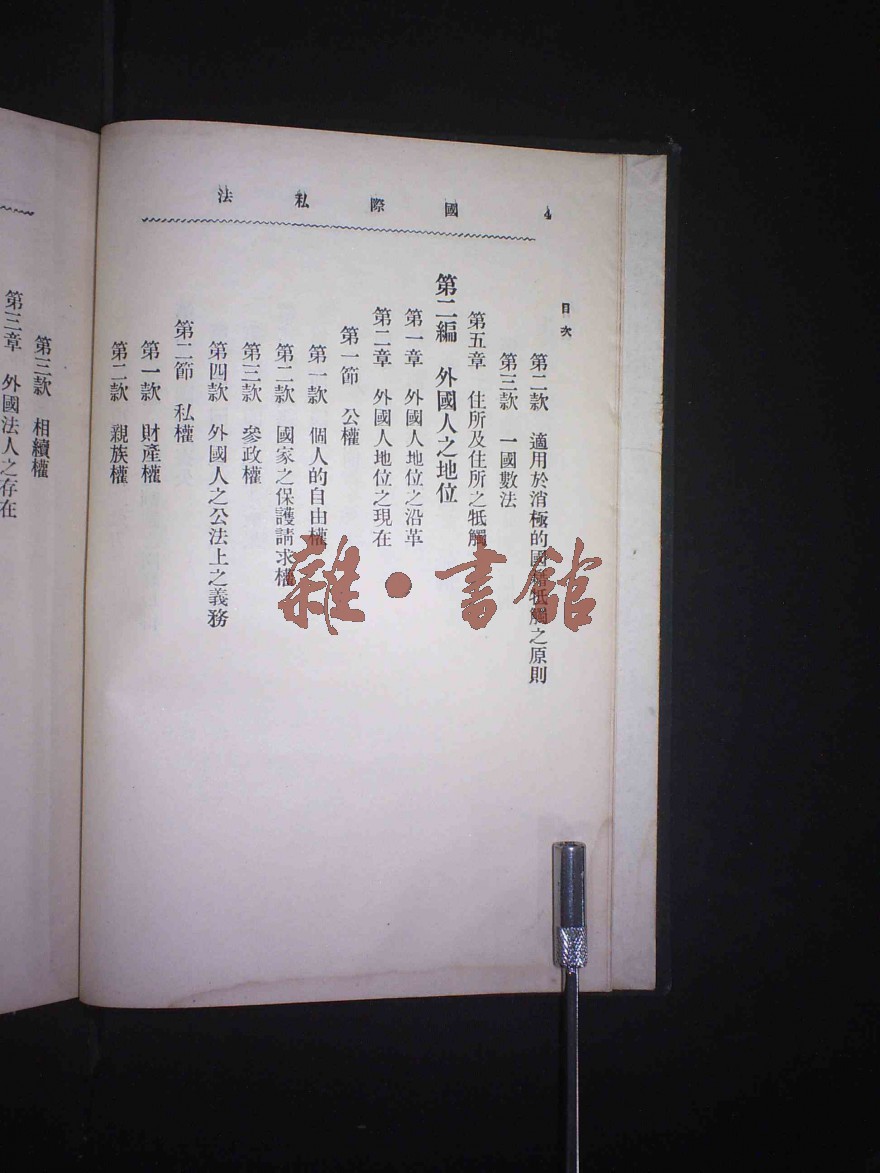 4 國際私法
目次
第二款 適用於消極的國籍牴觸之原則
第三款 一國數法
第五章 住所及住所之牴觸
第二編 外國人之地位
第一章 外國人地位之沿革
第二章 外國人地位之現在
第一節 公權
第一款 個人的自由權
第二款 國家之保護請求權
第三款 參政權
第四款 外國人之公法上之義務
第二節 私權
第一款 財產權
第二款 親族權
第三款 相續權
第三章 外國法人之存在
雜·書館